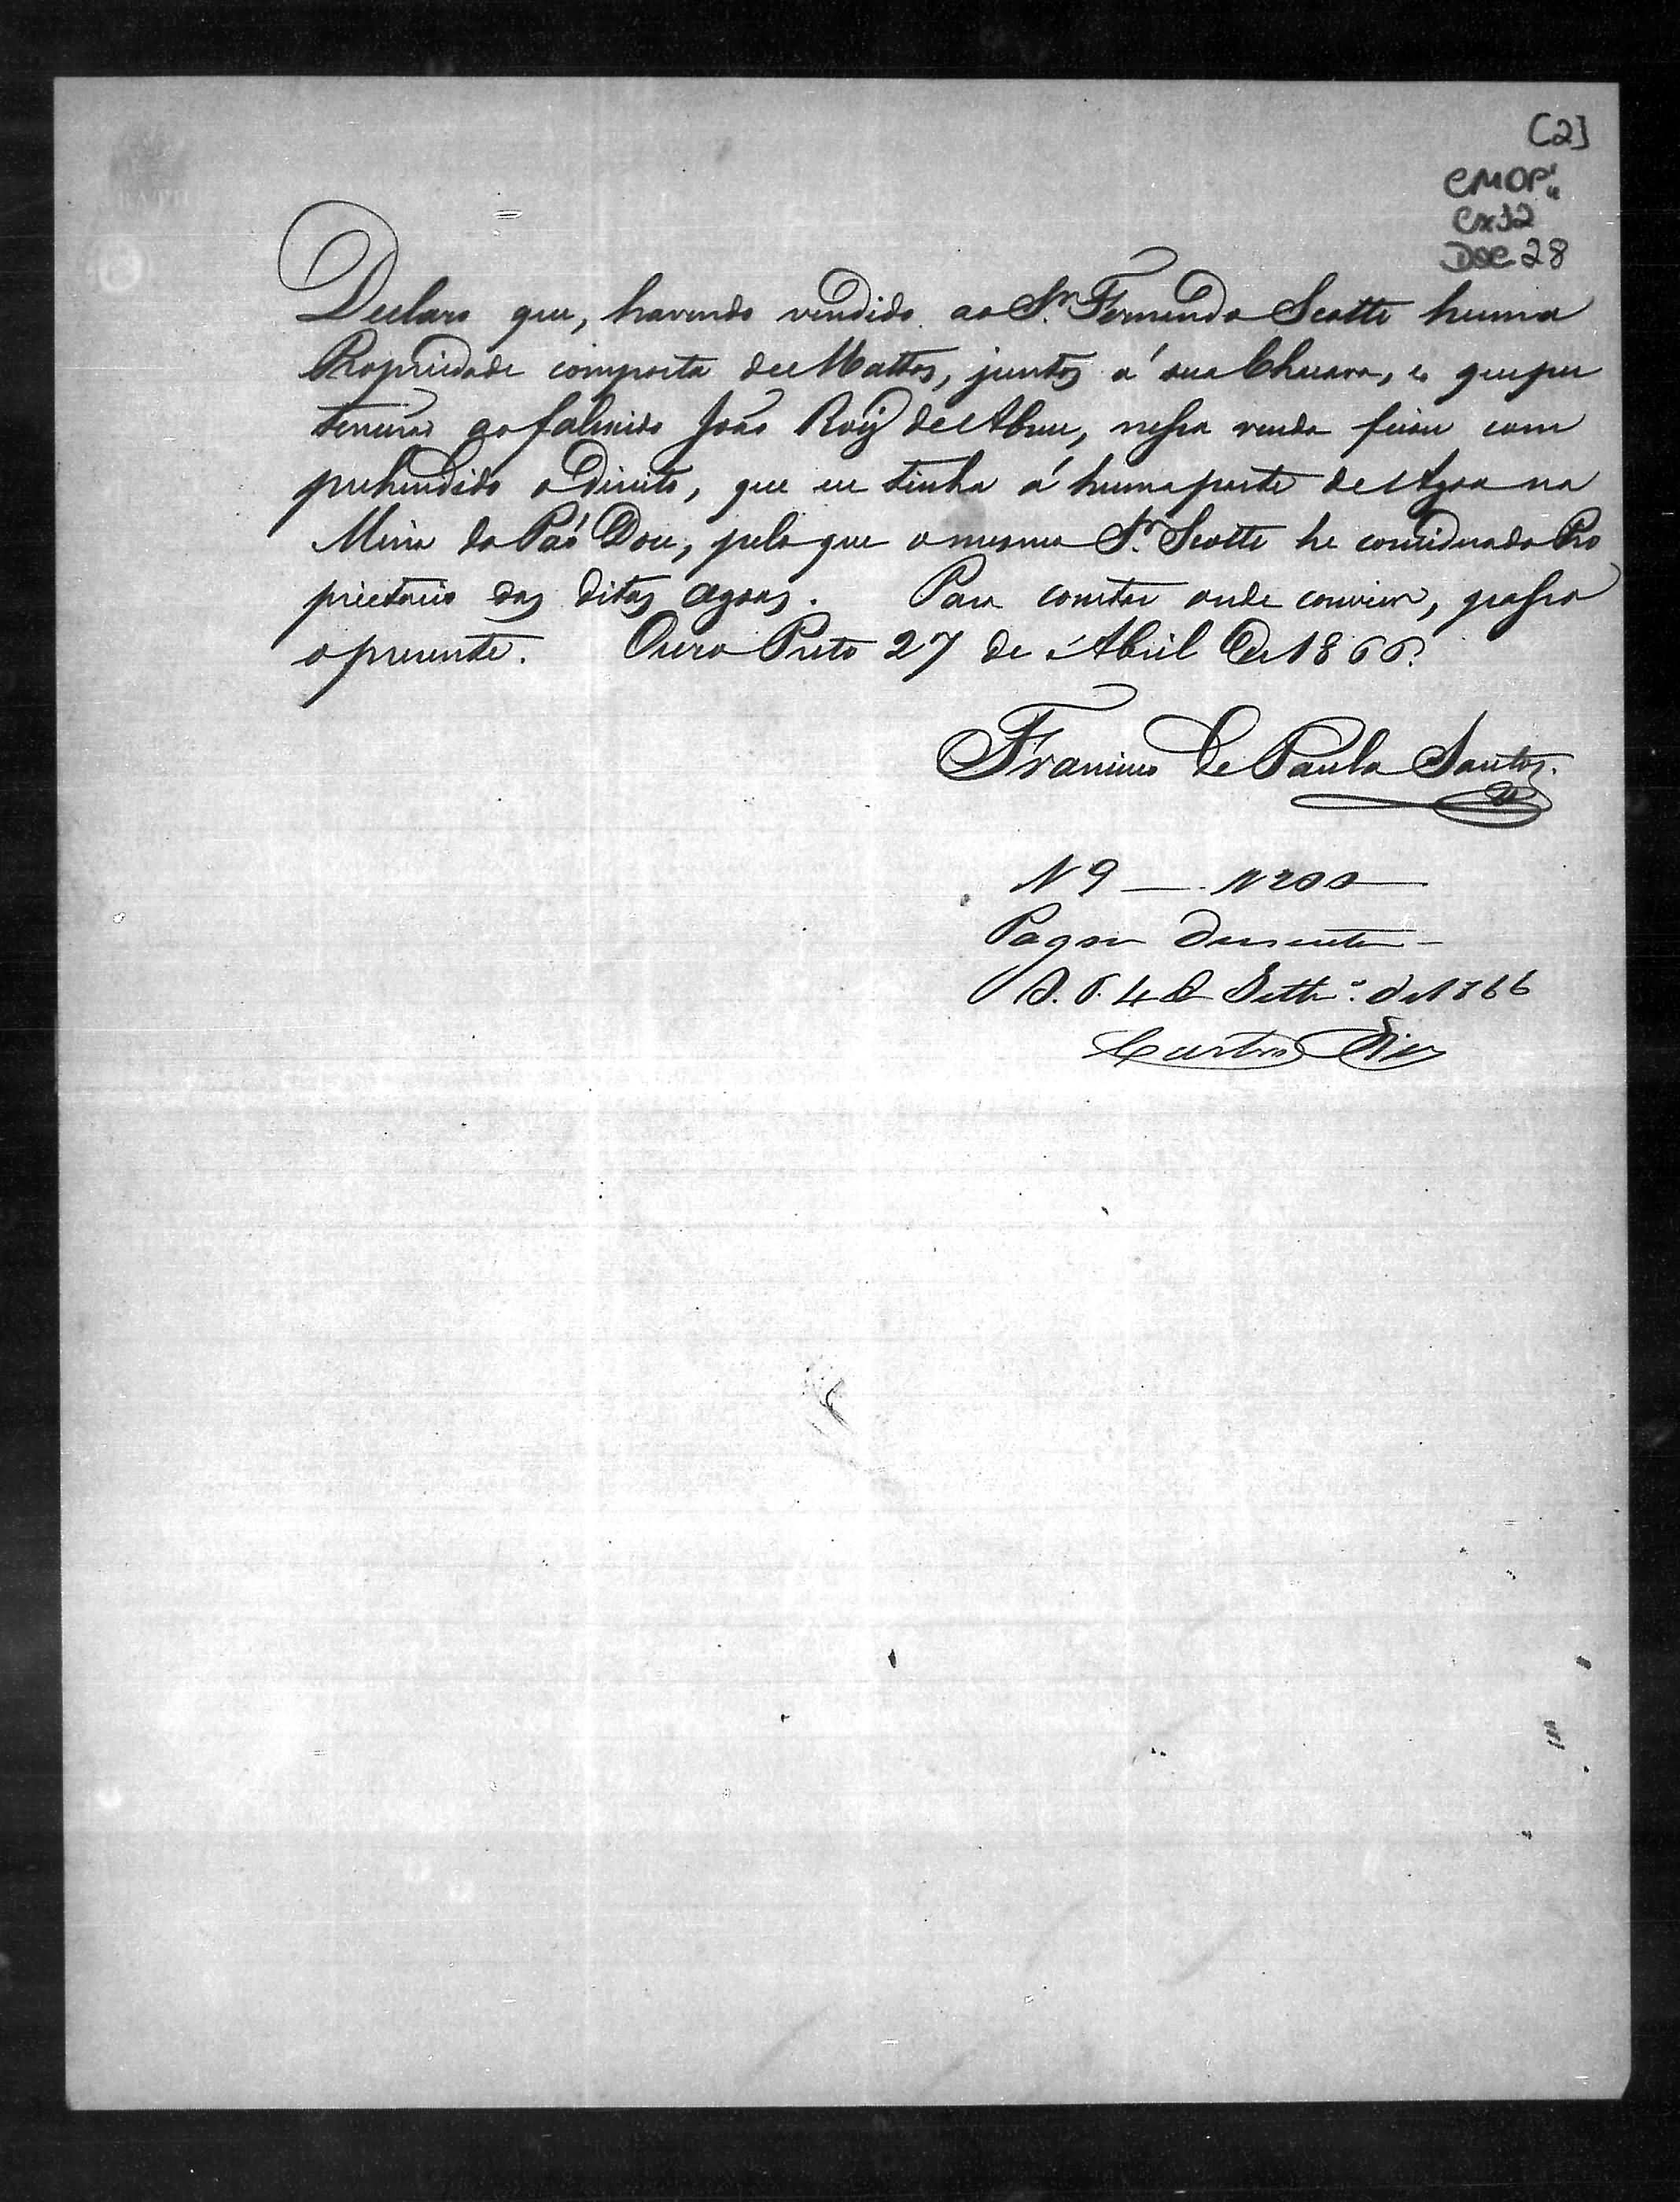 [2]
CMOP
Cx 12
Doc 28
Declaro que, havendo vendido ao Sr. Fernando Scotte huma
Propriedade composta de Mattos, juntos á sua Chacara, e que per
tenceu ao falecido João Roiz de Abreu, nessa venda ficou com
prehendido o direito, que eu tinha á huma parte de Agoa na
Mina do Páo Doce, pelo que o mesmo Sr. Scotte he considerado Pro
prietario das ditas agoas. Para constar onde convier, passo
o presente. Ouro Preto 27 de Abril de 1866.
Francisco de Paula Santos.
N 9 — 200
Pagou duzentos
O. P. 4 de Settro. de 1866
Castro